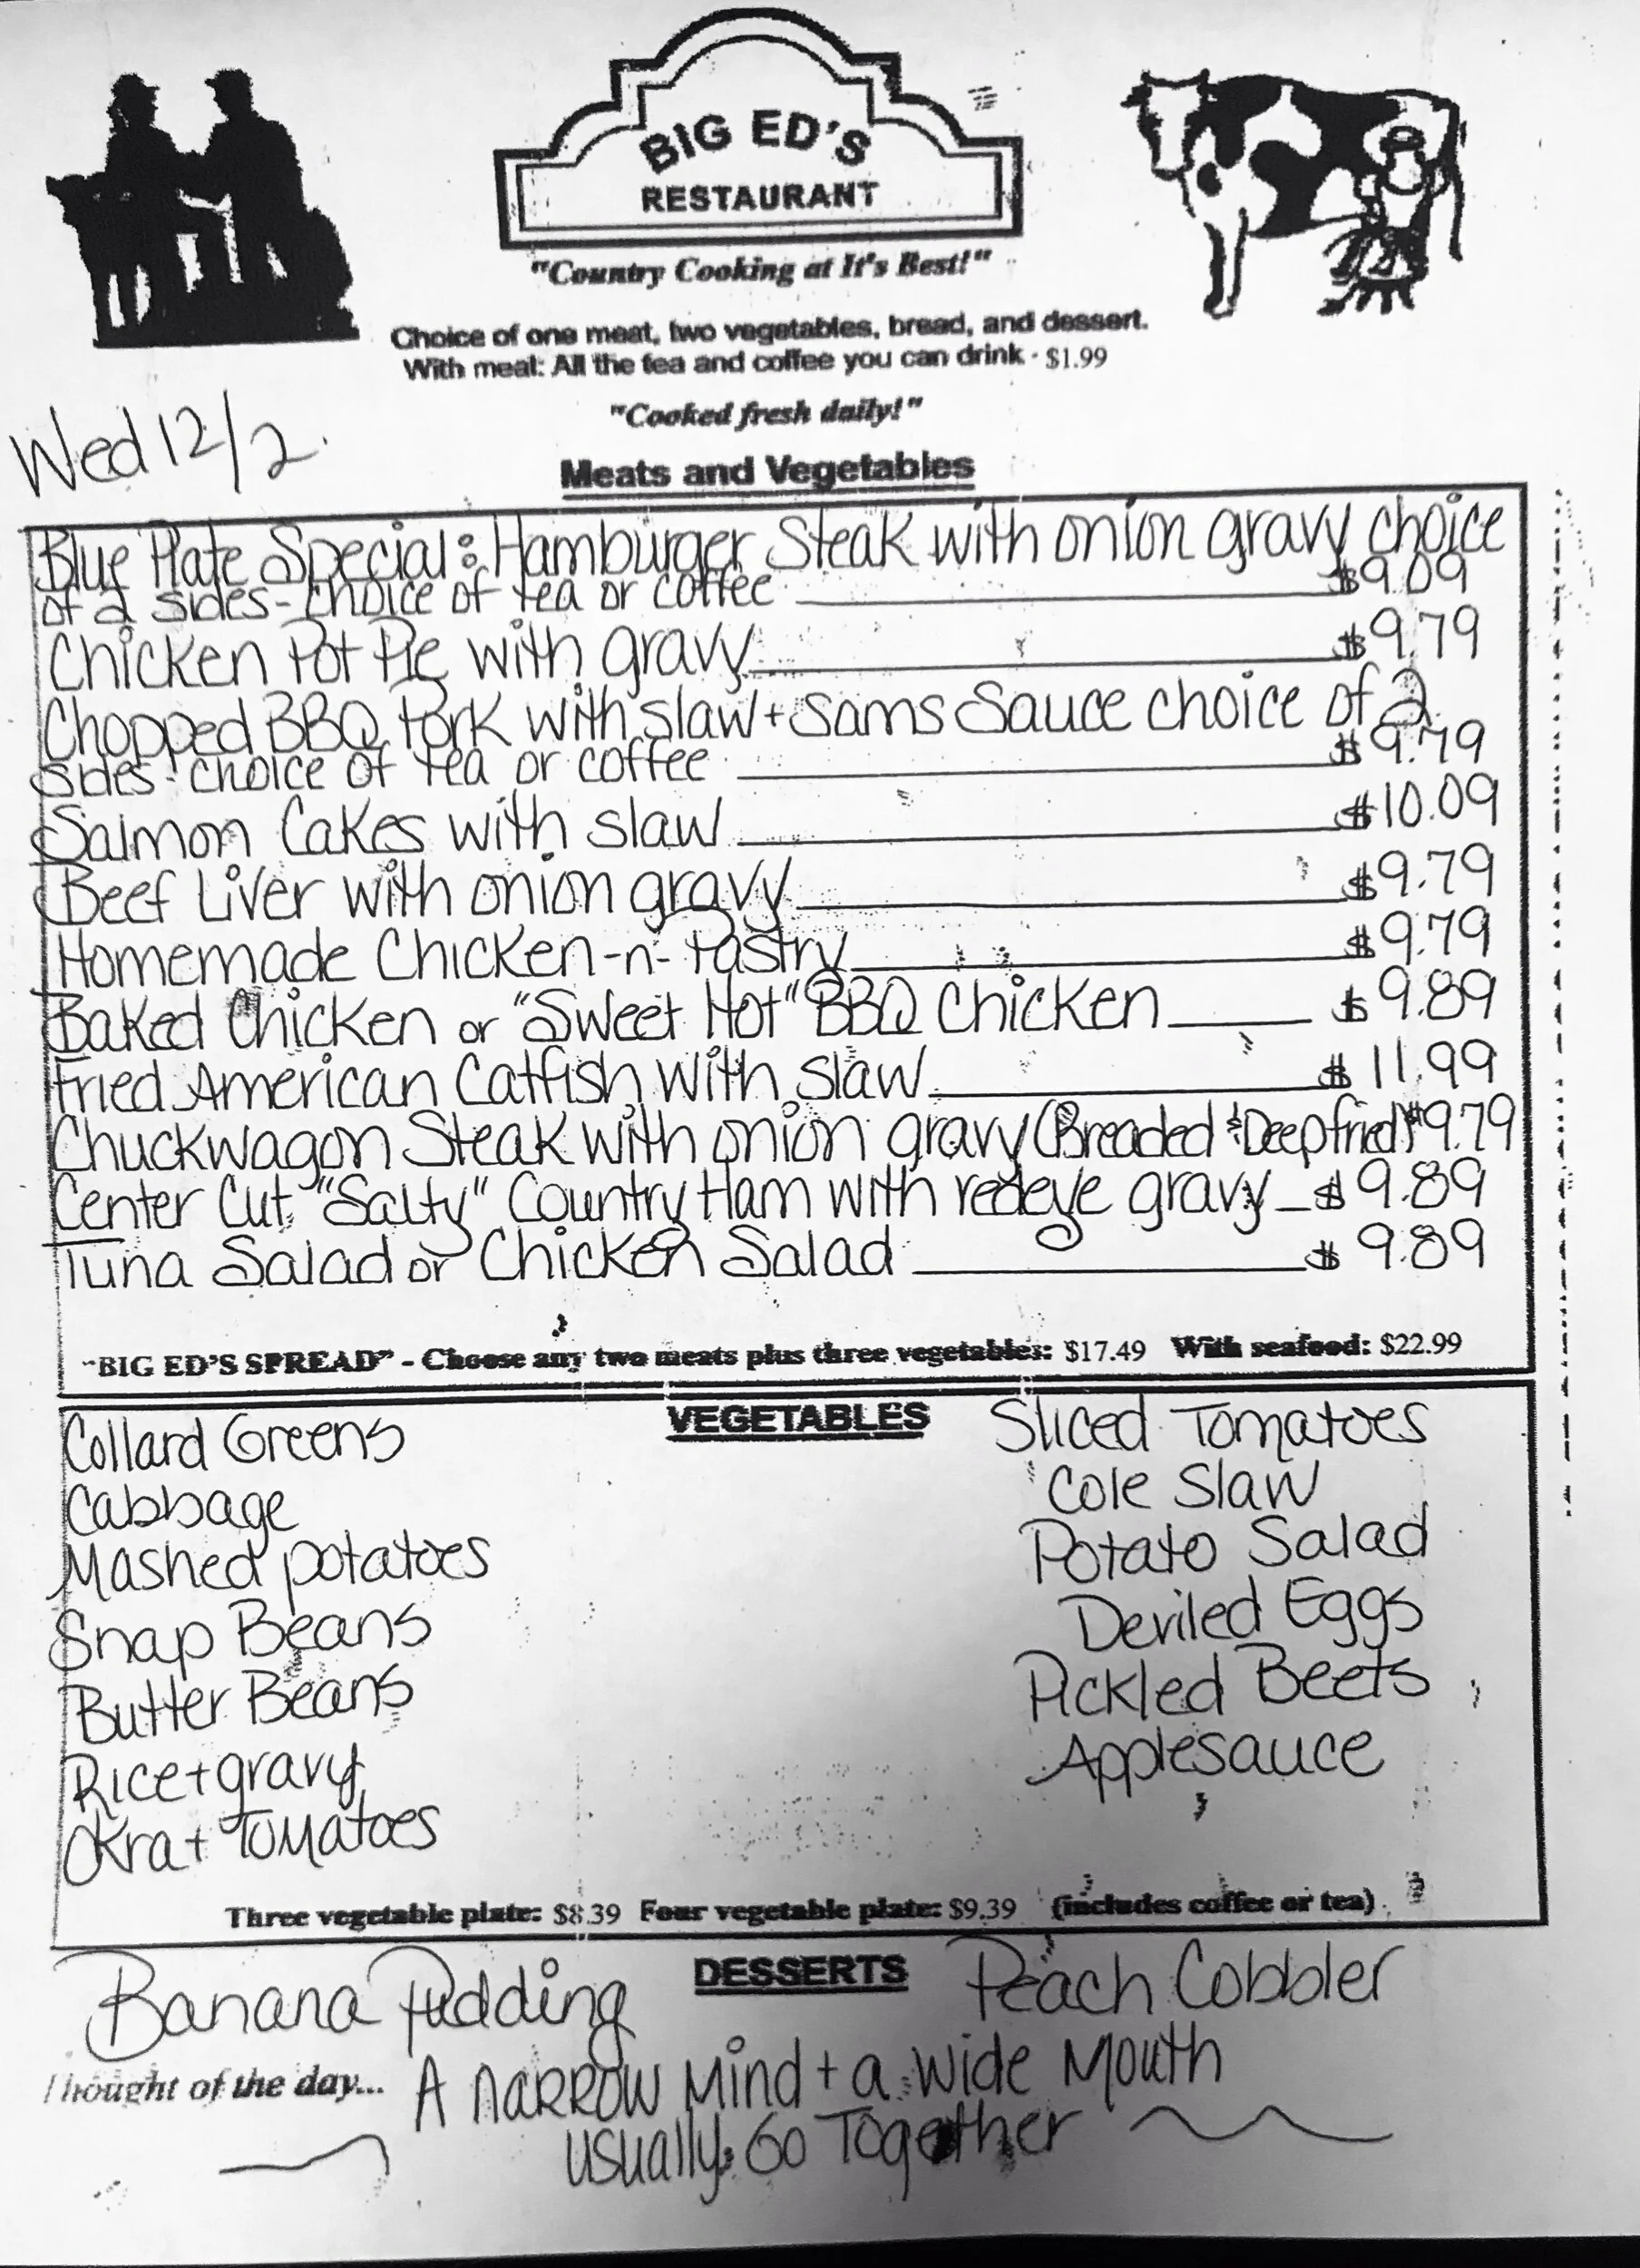 BIG ED'S
RESTAURANT
"Country Cooking at It's Best!"
Choice of one meat, two vegetables, bread, and dessert.
With meal: All the tea and coffee you can drink · $1.99
"Cooked fresh daily!"
Wed 12/2
Meats and Vegetables
Blue Plate Special: Hamburger Steak with onion gravy choice
of 2 sides - choice of tea or coffee $9.09
Chicken Pot Pie with gravy $9.79
Chopped BBQ Pork with slaw + Sams Sauce choice of 2
sides - choice of tea or coffee $9.79
Salmon Cakes with slaw $10.09
Beef Liver with onion gravy $9.79
Homemade Chicken-n-Pastry $9.79
Baked Chicken or "Sweet Hot" BBQ Chicken $9.89
Fried American Catfish with slaw $11.99
Chuckwagon Steak with onion gravy (Breaded & Deep fried) $9.79
Center Cut "Salty" Country Ham with redeye gravy $9.89
Tuna Salad or Chicken Salad $9.89
"BIG ED'S SPREAD" - Choose any two meats plus three vegetables: $17.49 With seafood: $22.99
VEGETABLES
Collard Greens
Cabbage
Mashed potatoes
Snap Beans
Butter Beans
Rice + gravy
Okra + Tomatoes
Sliced Tomatoes
Cole Slaw
Potato Salad
Deviled Eggs
Pickled Beets
Applesauce
Three vegetable plate: $8.39 Four vegetable plate: $9.39 (includes coffee or tea)
DESSERTS
Banana Pudding
Peach Cobbler
Thought of the day... A NARROW Mind + a wide Mouth
usually Go Together